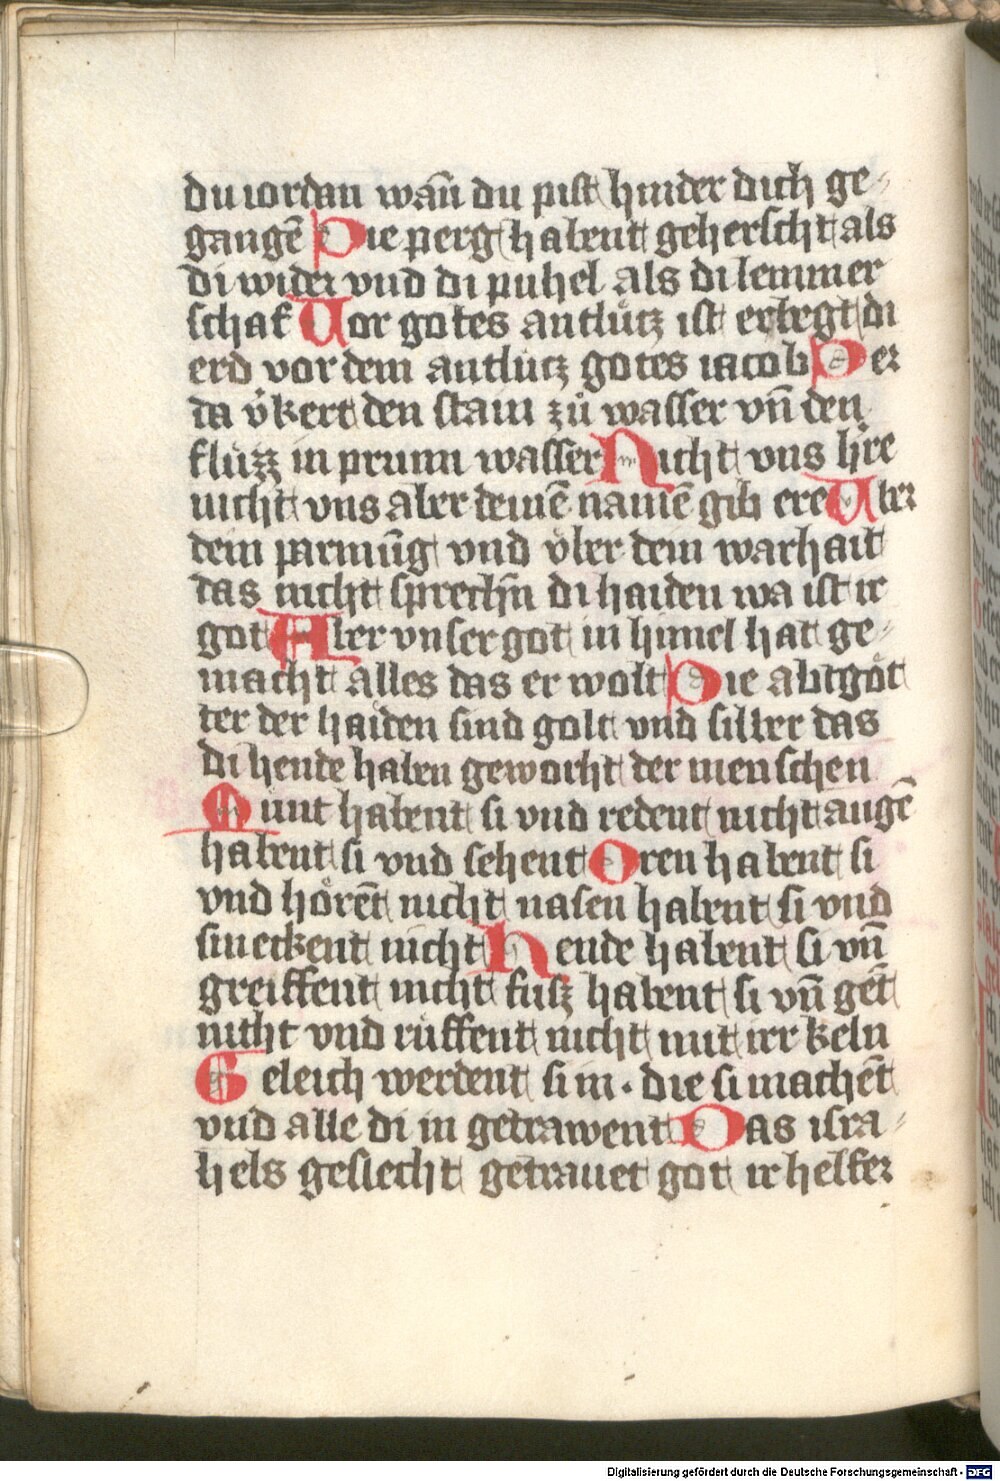 du iordan wañ du pist hinder dich ge-
gangē Die perg habent geherscht als
di wider vnd di puhel als di lemmer
schaf Vor gotes antlütz ist erbegt di
erd vor dem antlütz gotes iacob Der
da v̓kert den stain zů wasser vn̄ den
flüzz in prunn wasser Nicht vns h̓re
nicht vns aber deinē namē gib ere Vber
dein parmūg vnd vber dein warhait
das nicht sprechn̄ di haiden wa ist ir
got Aber vnser got in himel hat ge-
macht alles das er wolt Die abtgöt
ter der haiden sind golt vnd silber das
di hende haben geworcht der menschen
Munt habent si vnd redent nicht augē
habent si vnd sehent Oren habent si
vnd hörēt nicht nasen habent si vnd
smeckent nicht Hende habent si vn̄
greiffent nicht fusz habent si vn̄ gēt
nicht vnd rüffent nicht mit irr keln
Geleich werdent si in · die si machēt
vnd alle di in getrawent Das isra-
hels geslecht getrauet got ir helfer
Digitalisierung gefördert durch die Deutsche Forschungsgemeinschaft - DFG